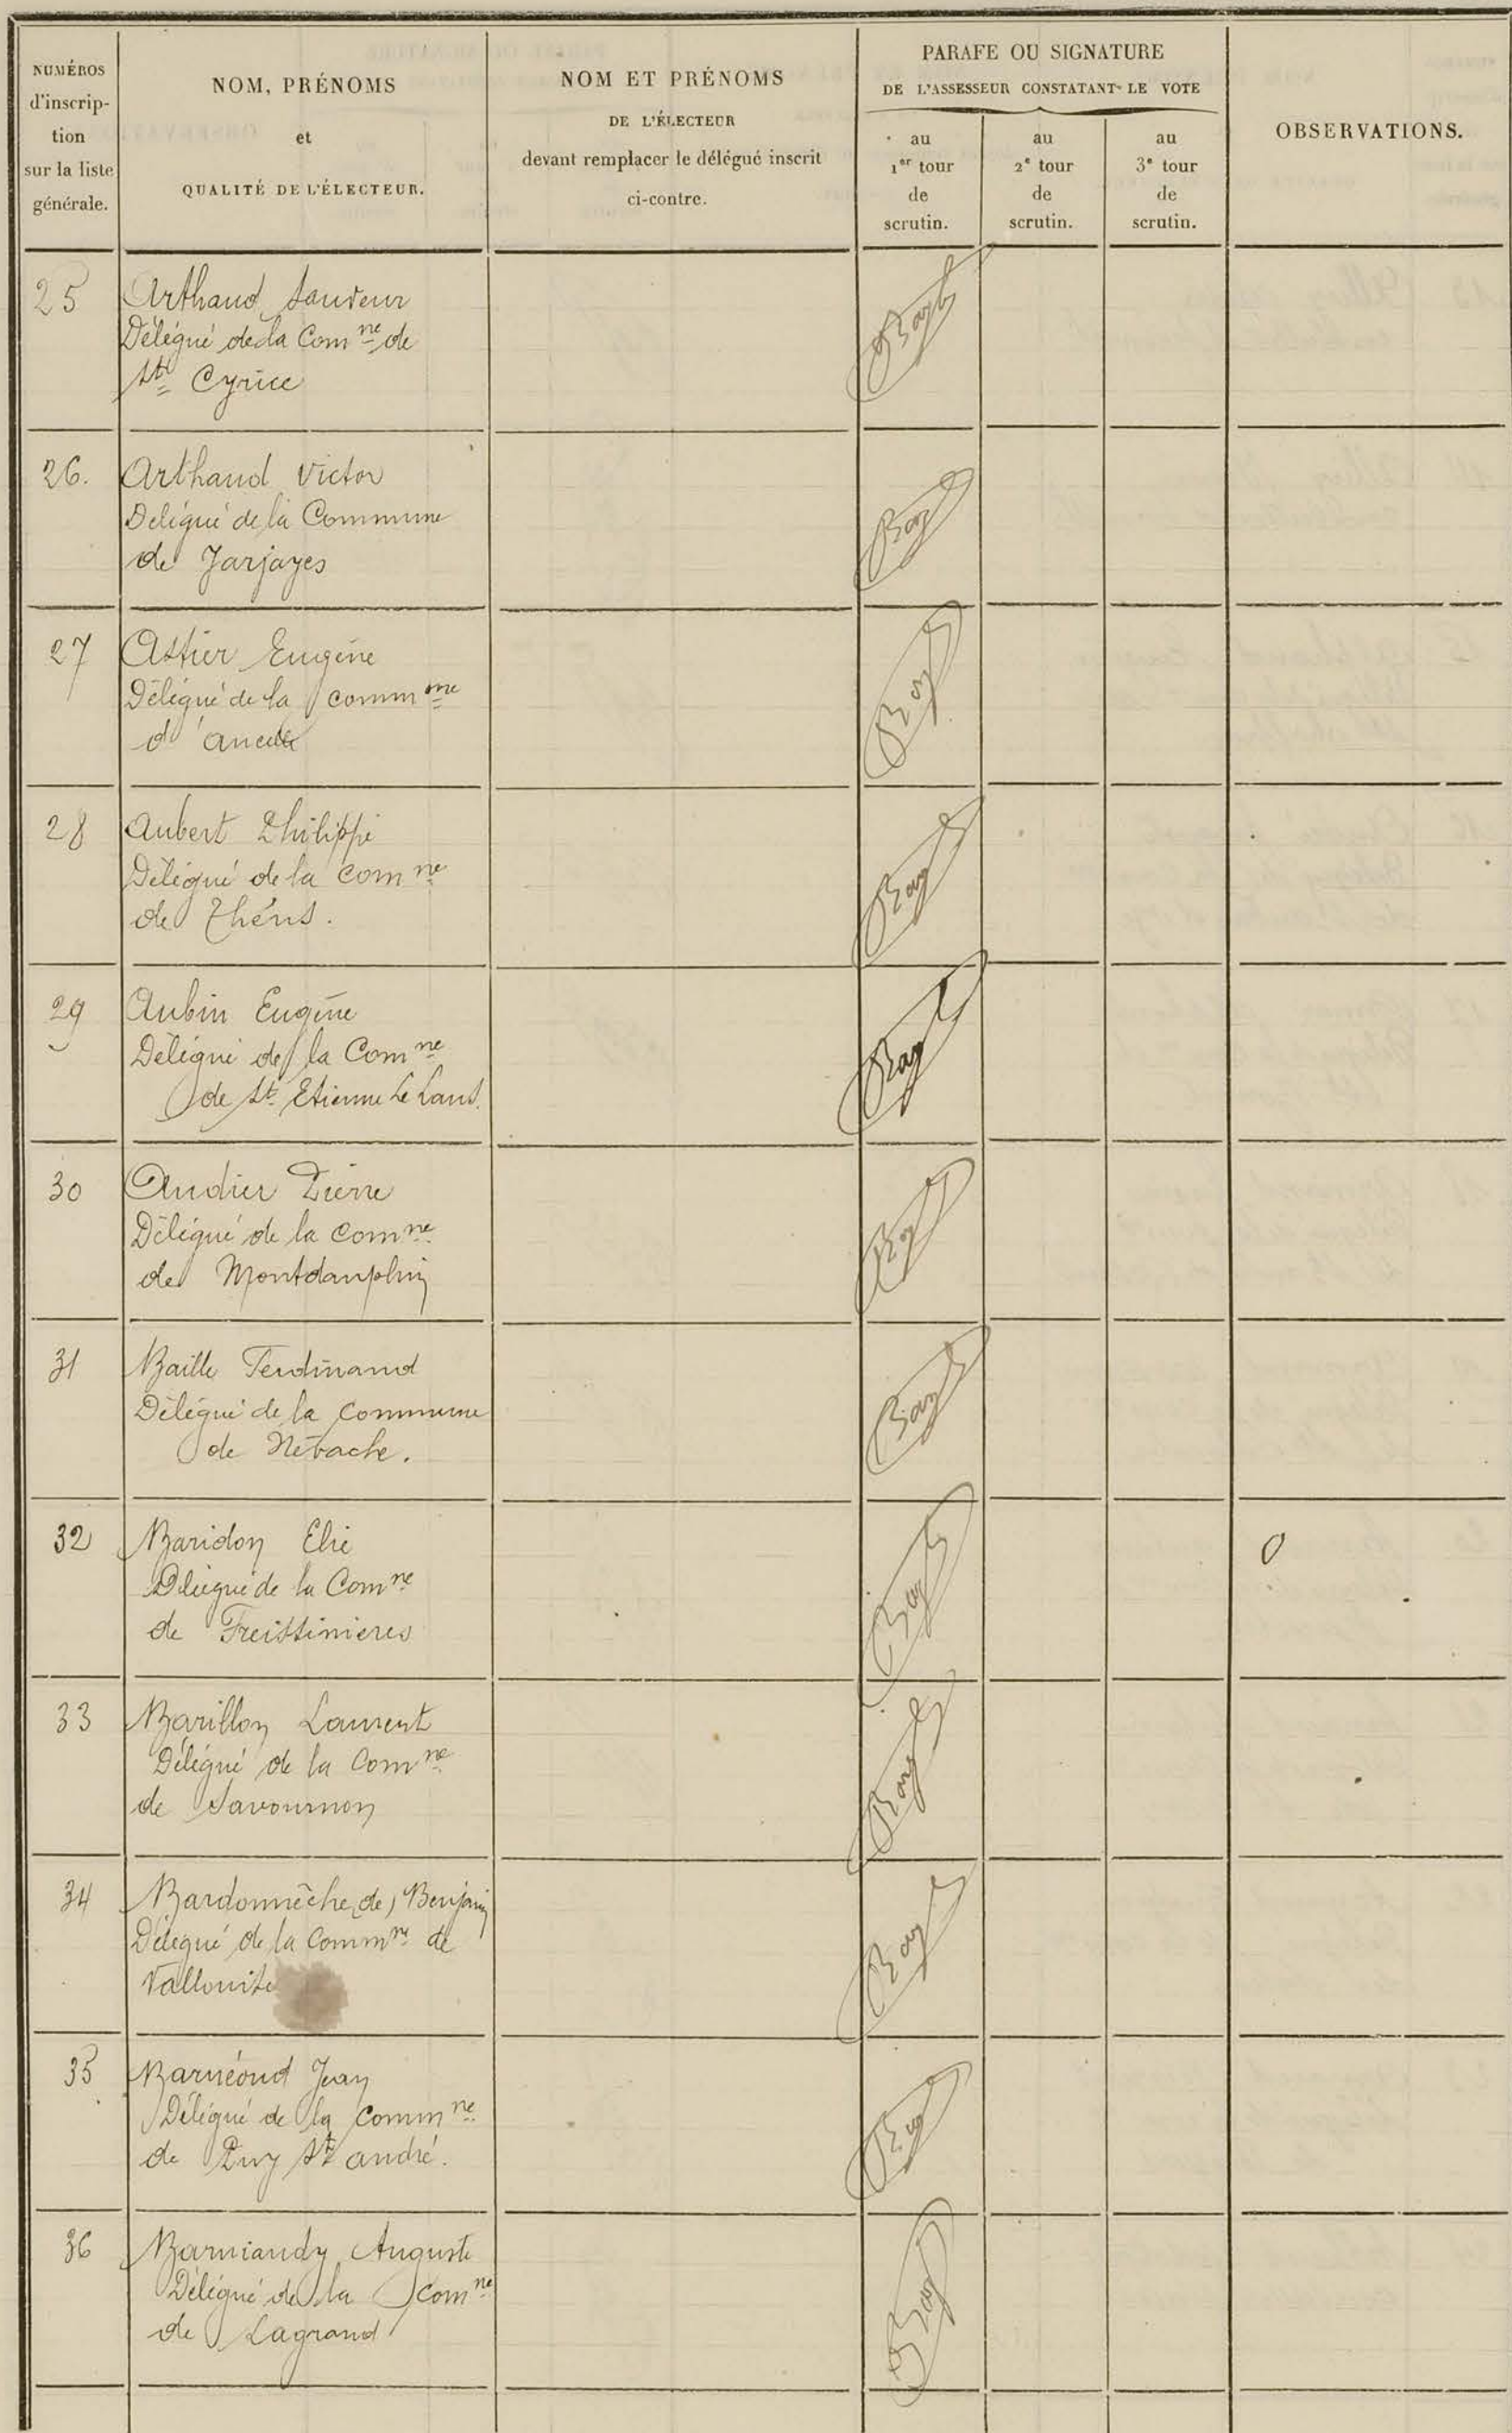 NUMÉROS
d'inscrip-
tion
sur la liste
générale.
NOM, PRÉNOMS
et
QUALITÉ DE L'ÉLECTEUR.
NOM ET PRÉNOMS
DE L'ÉLECTEUR
devant remplacer le délégué inscrit
ci-contre.
PARAFE OU SIGNATURE
DE L'ASSESSEUR CONSTATANT LE VOTE
au
1er tour
de
scrutin.
au
2e tour
de
scrutin.
au
3e tour
de
scrutin.
OBSERVATIONS.
25 Arthaud Sauveur
Délégué de la Comne de
Ste Cyrice
26. Arthaud Victor
Délégué de la Commune
de Jarjayes
27 Astier Eugène
Délégué de la commme
d'ancelle
28 Aubert Philippe
Délégué de la comne
de Théus.
29 Aubin Eugène
Délégué de la Comne
de St Etienne Le Laus.
30 Audier Pierre
Délégué de la comne
de Montdauphin
31 Baille Ferdinand
Délégué de la Commune
de Névache.
32 Baridon Elie O
Délégué de la Comne
de Freissinières
33 Barillon Laurent
Délégué de la Comne
de Savournon
34 Bardonnèche, de, Benjamin
Délégué de la Commne de
Vallouise
35 Barnéoud Jean
Délégué de la Commne
de Puy St andré.
36 Barniaudy Auguste
Délégué de la Comne
de Lagrand